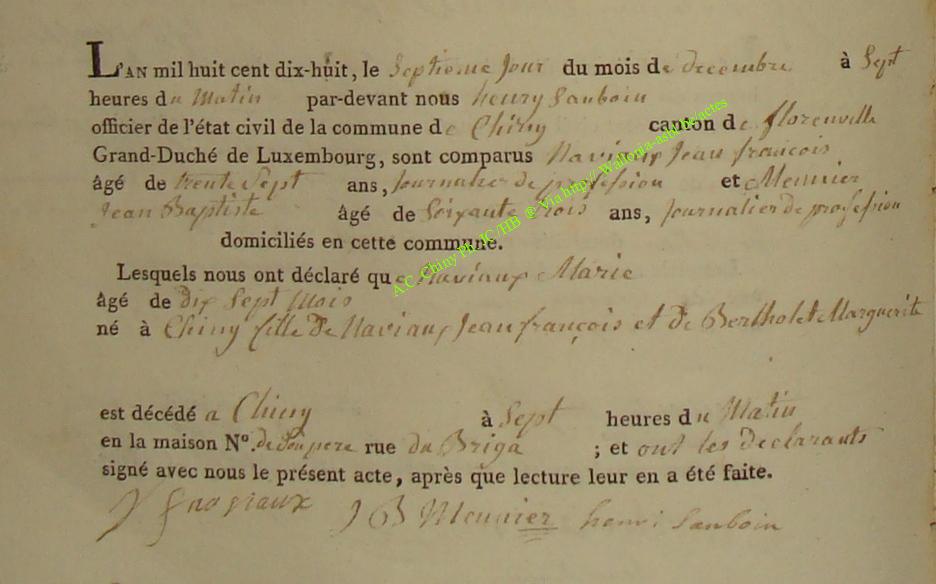 L'AN mil huit cent dix-huit, le Septieme Jour du mois de decembre à Sept
heures du Matin par-devant nous henry Sauboin
officier de l'état civil de la commune de Chiny canton de florenville
Grand-Duché de Luxembourg, sont comparus Naviaux Jean françois
âgé de trente Sept ans, Journalier de profession et Meunier
Jean Baptiste âgé de Soixante trois ans, Journalier de profession
domiciliés en cette commune.
Lesquels nous ont déclaré que Naviaux Marie
âgé de dix Sept Mois
né à Chiny fille de Naviaux Jean françois et de Bertholet Marguerite
est décédé a Chiny à Sept heures du Matin
en la maison N°. de Son pere rue du Briga ; et ont les declarants
signé avec nous le présent acte, après que lecture leur en a été faite.
J B Meunier henri Sauboin
A.C. Chiny Ph. JC/HB ® Via http:// Wallonia-asbl.be/actes